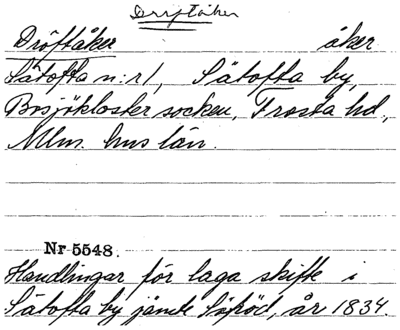 Dröftåker
Dröftåker åker
Sätofta n:r 1, Sätofta by,
Bosjökloster socken, Frosta hd.,
Mlm. hus län.
Nr 5548.
Handlingar för laga skifte i
Sätofta by jämte Sjöröd, år 1834.